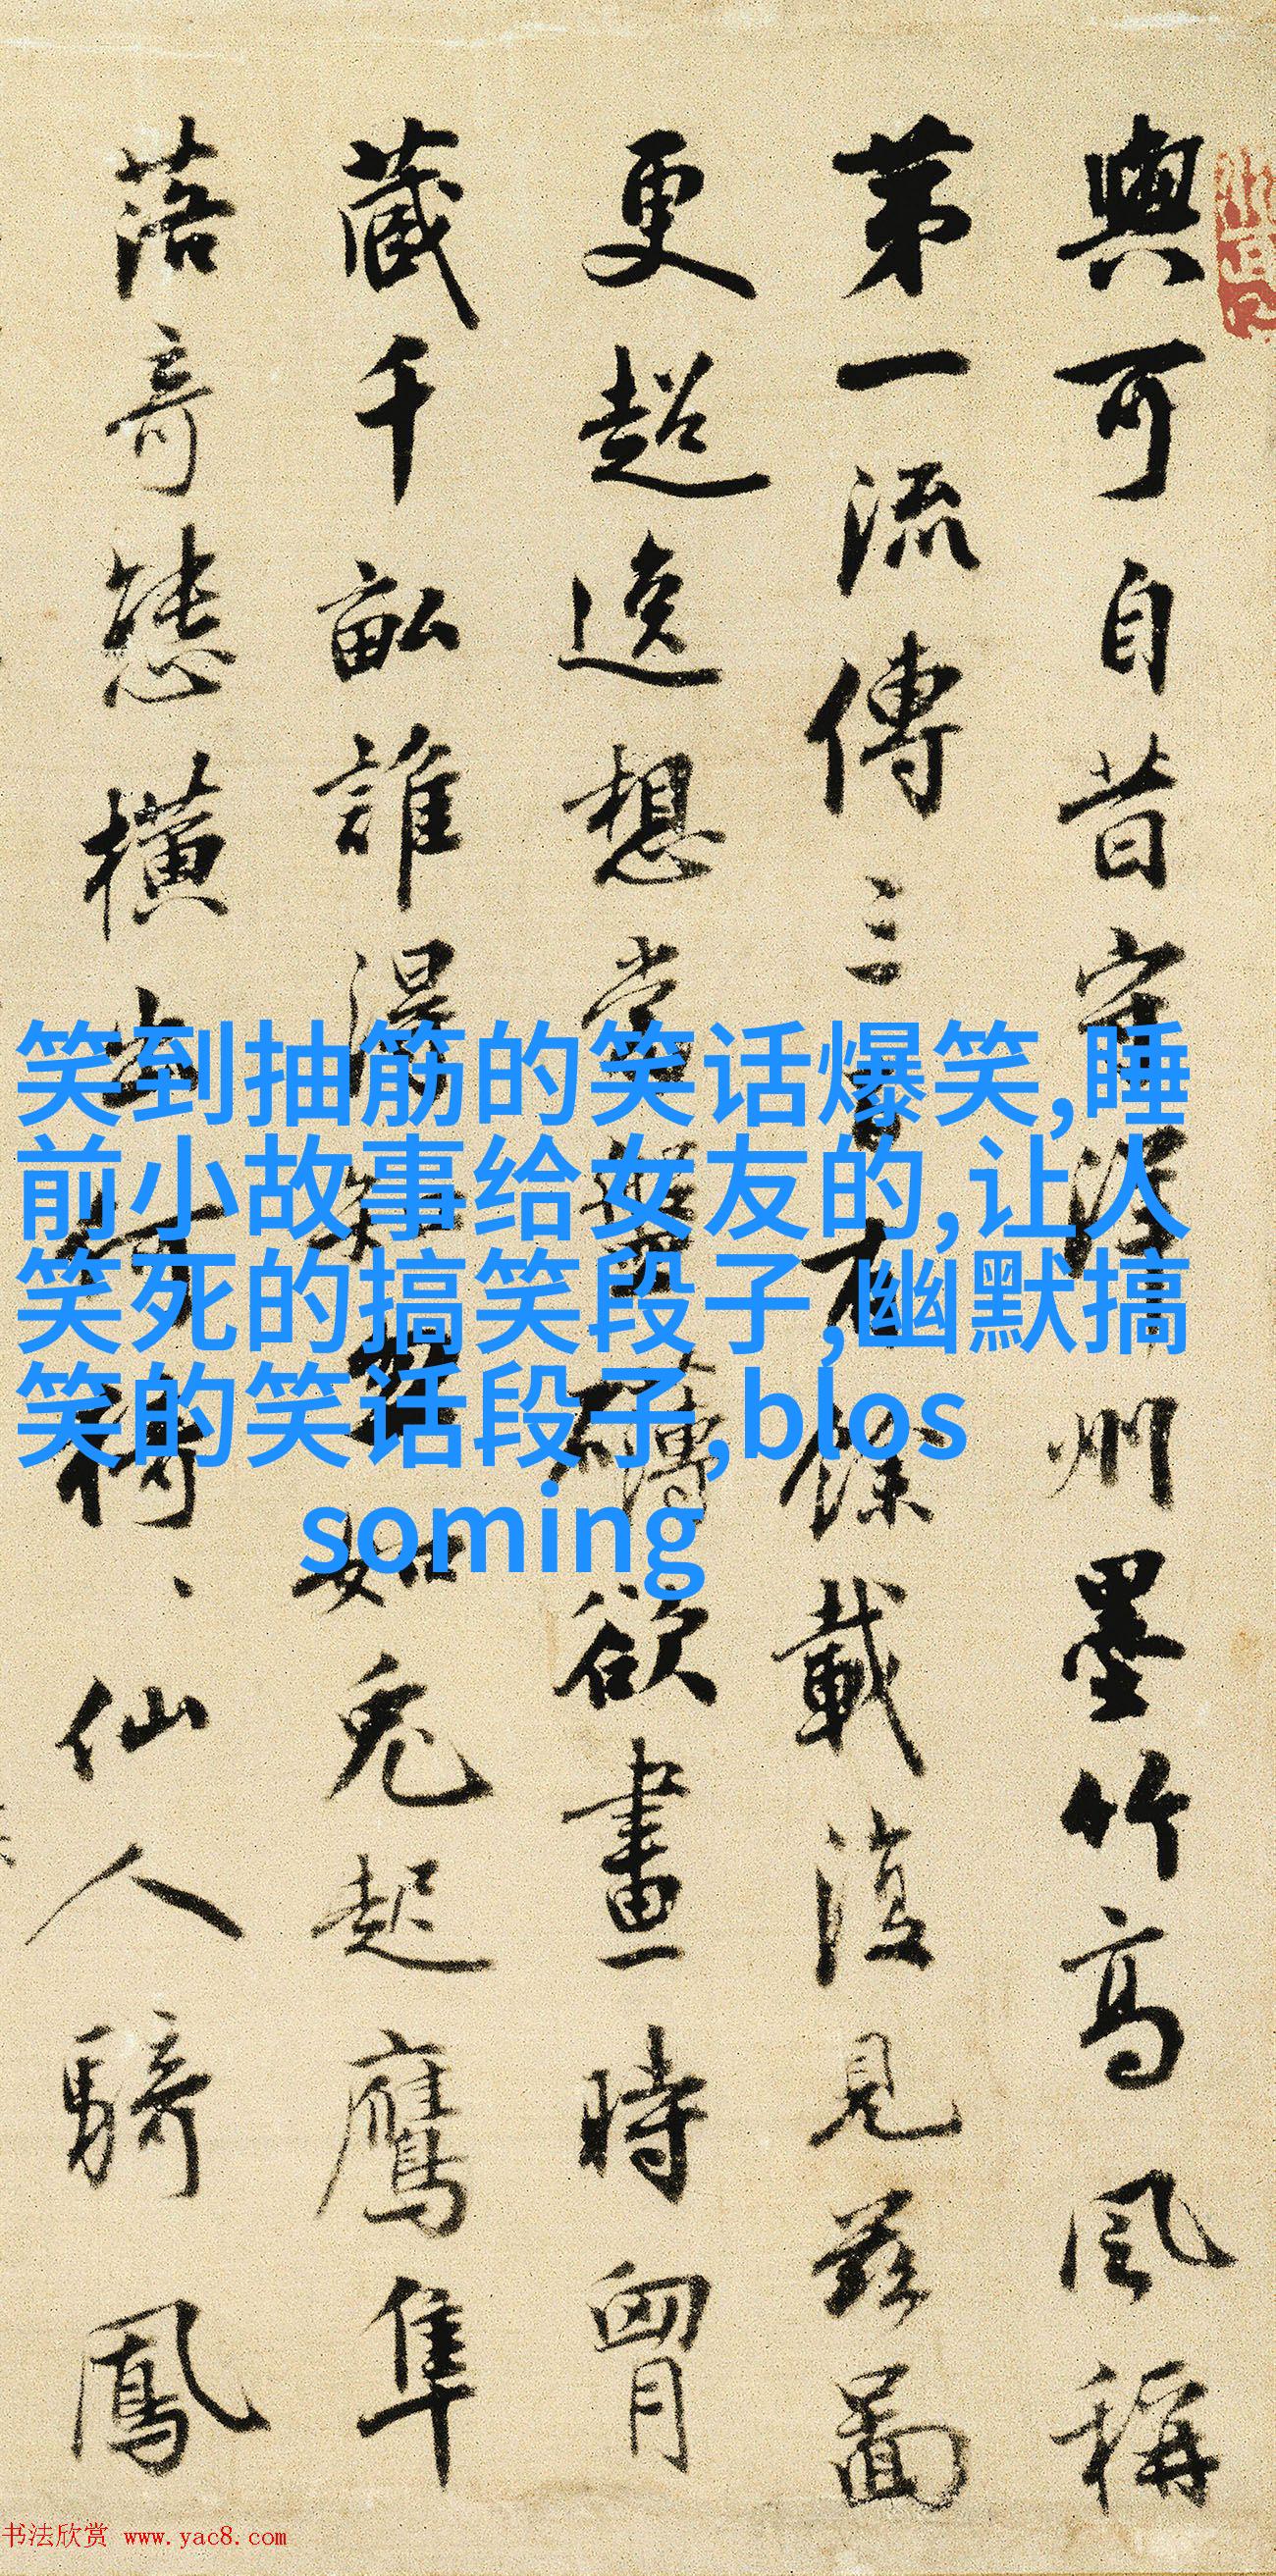 與可自昔守洋州墨竹高風稱
苐一流傳三百有餘載復見茲圖
更超逸想當盤礴欲畫時胷
藏千畝誰淂知勢如兔起鷹隼
落奇態橫出何猗、仙人騎鳳
笑到抽筋的笑话爆笑,睡
前小故事给女友的,让人
笑死的搞笑段子,幽默搞
笑的笑话段子,blos
soming
书法欣赏 www.yac8.com